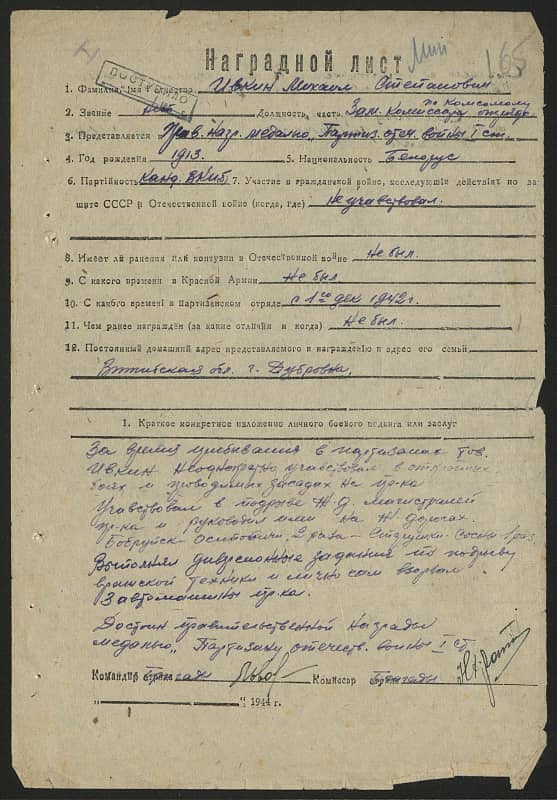 Наградной лист
165
ПОСТУПИЛО
1. Фамилия, имя и отчество Ивкин Михаил Степанович
2. Звание Должность, часть Зам. Комиссара отряда по комсомолу
3. Представляется Прав. Нагр. медалью „Партиз. отеч. войны I ст.
4. Год рождения 1913. 5. Национальность Белорус
6. Партийность Канд. ВКП/б 7. Участие в гражданской войне, последующих действиях по за-
щите СССР и Отечественной войне (когда, где) Не учавствовал.
8. Имеет ли ранения или контузии в Отечественной войне Не был.
9. С какого времени в Красной Армии Не был
10. С какого времени в партизанском отряде с 1го дек 1942 г.
11. Чем ранее награжден (за какие отличия и когда) Не был.
12. Постоянный домашний адрес представляемого к награждению и адрес его семьи
Витебская обл. г. Дубровна,
1. Краткое конкретное изложение личного боевого подвига или заслуг
За время пребывания в партизанах тов.
Ивкин неоднократно учавствовал в открытых
боях и проводимых засадах на пр-ка
Учавствовал в подрыве Ж.Д. магистралей
пр-ка и руководил ими на Ж. дорогах.
Бобруйск – Осиповичи, 2 раза –
Выполнял диверсионные задания по подрыву
вражской техники и лично сам взорвал
3 автомашины пр-ка.
Достоин правительственной награды
медалью „Партизану отечеств. войны I ст.
Командир Бригады Комиссар Бригады
„ " 1944 г.